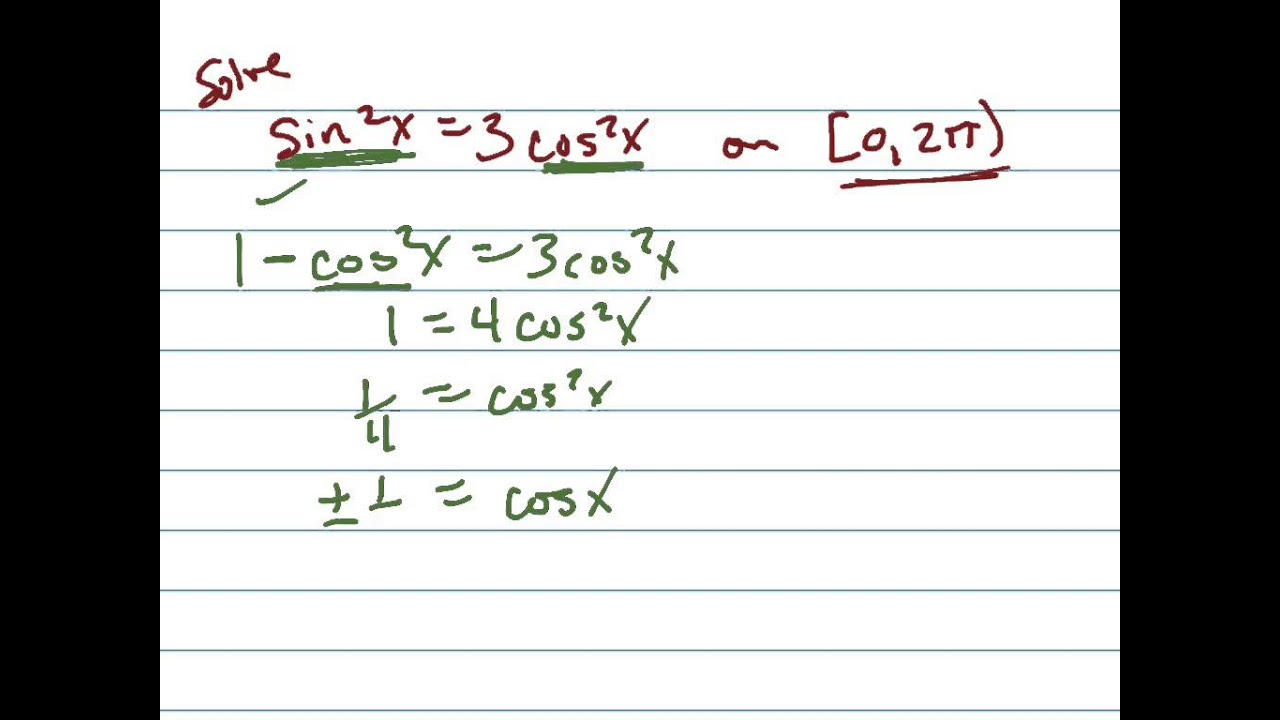 Solve
sin²x = 3cos²x on [0, 2π)
1 - cos²x = 3cos²x
1 = 4cos²x
1/4 = cos²x
± 1 = cos x